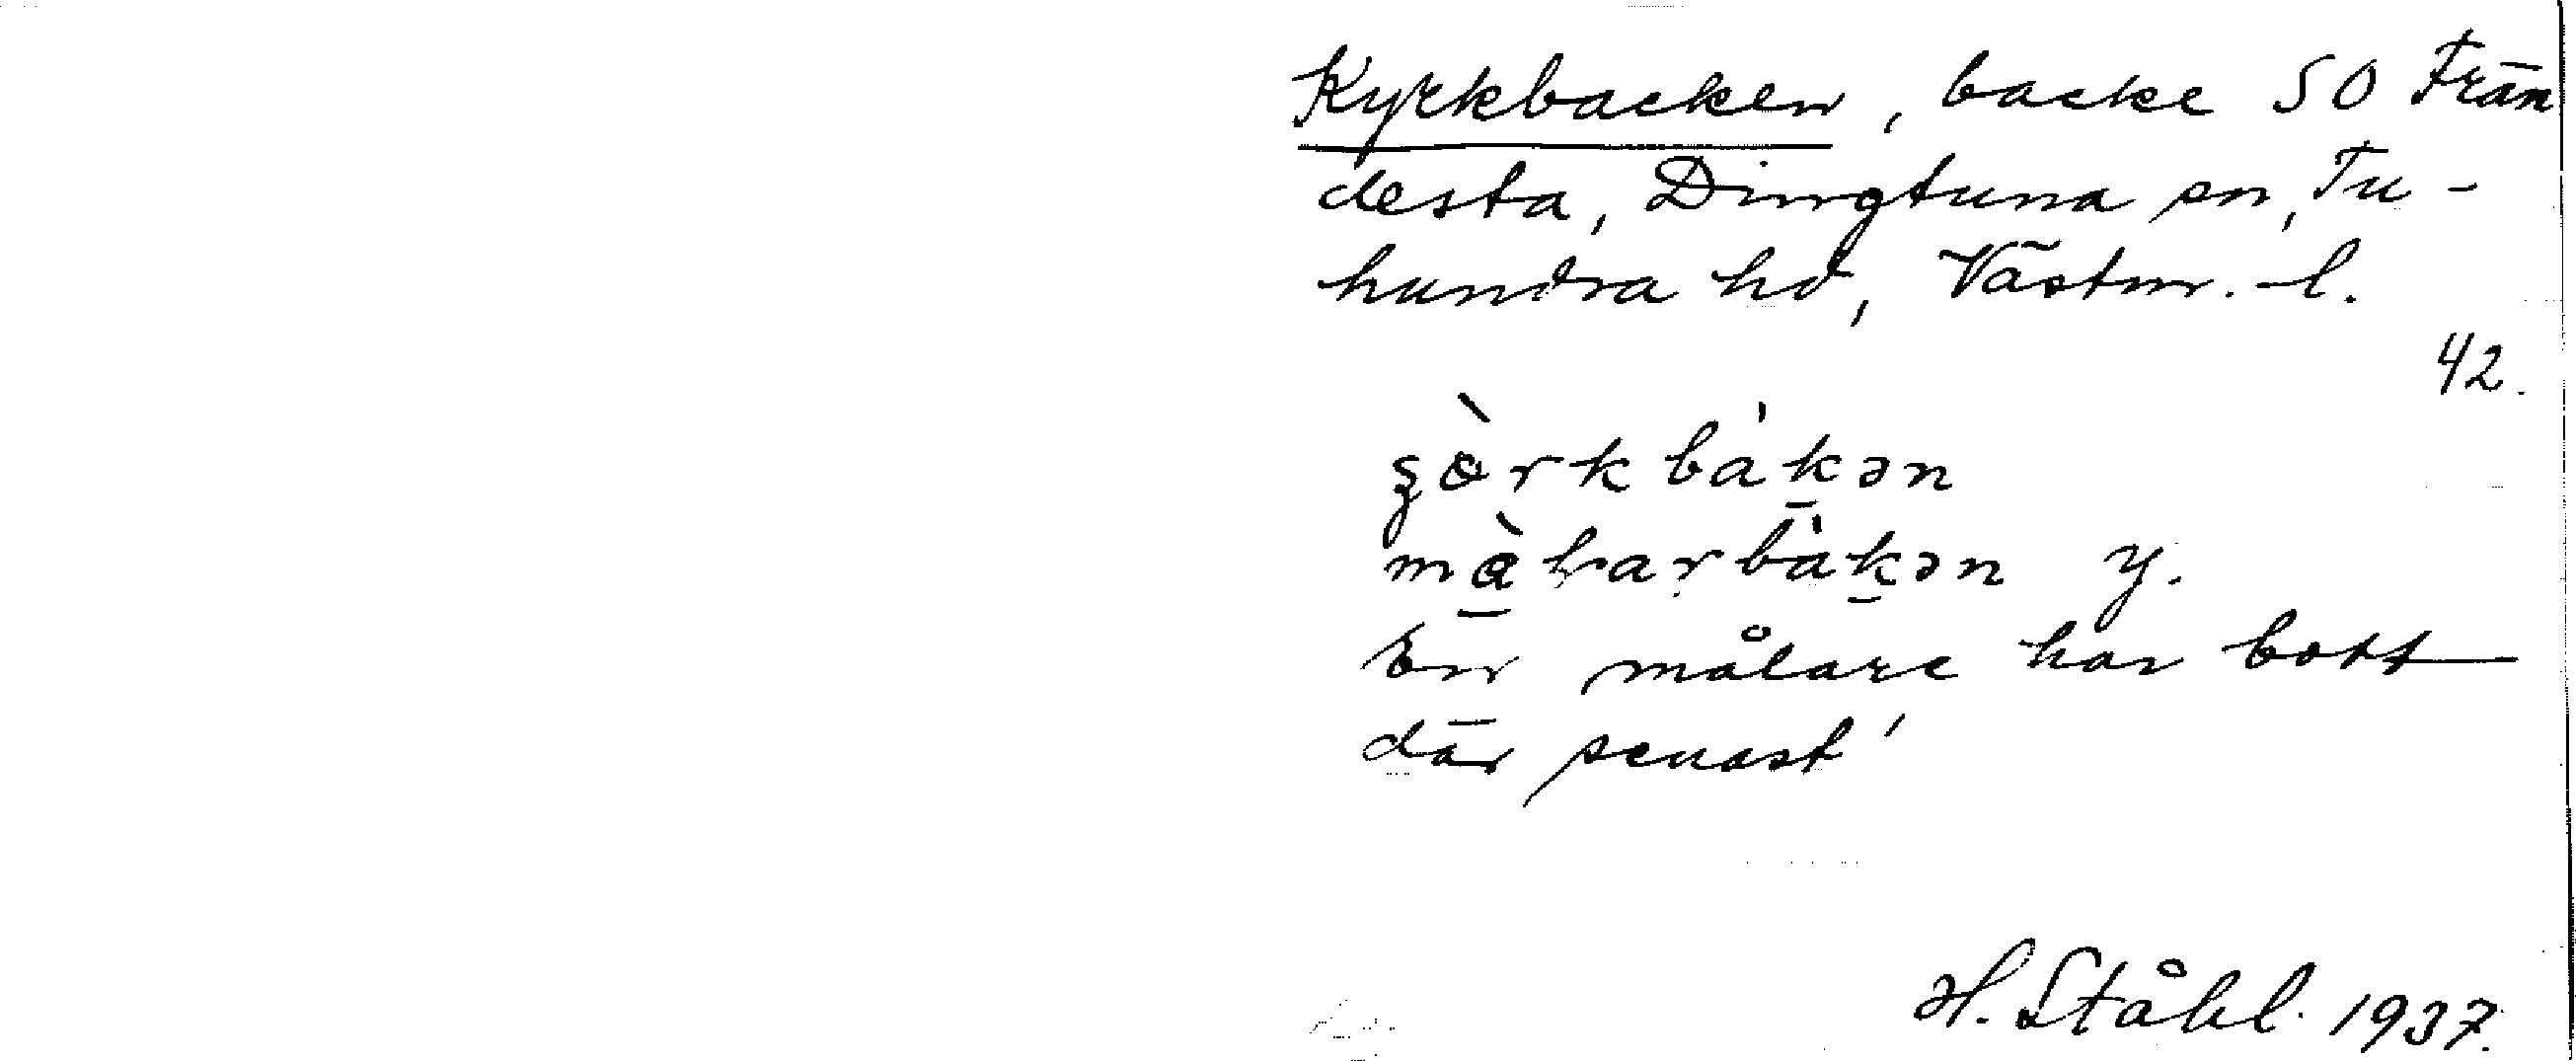 Kyrkbacken, backe SO Frän
desta, Dingtuna sn, Tu-
hundra hd, Västm. l.
42.
màlarbàkən y.
En målare har bott
där senast
H. Ståhl. 1937.